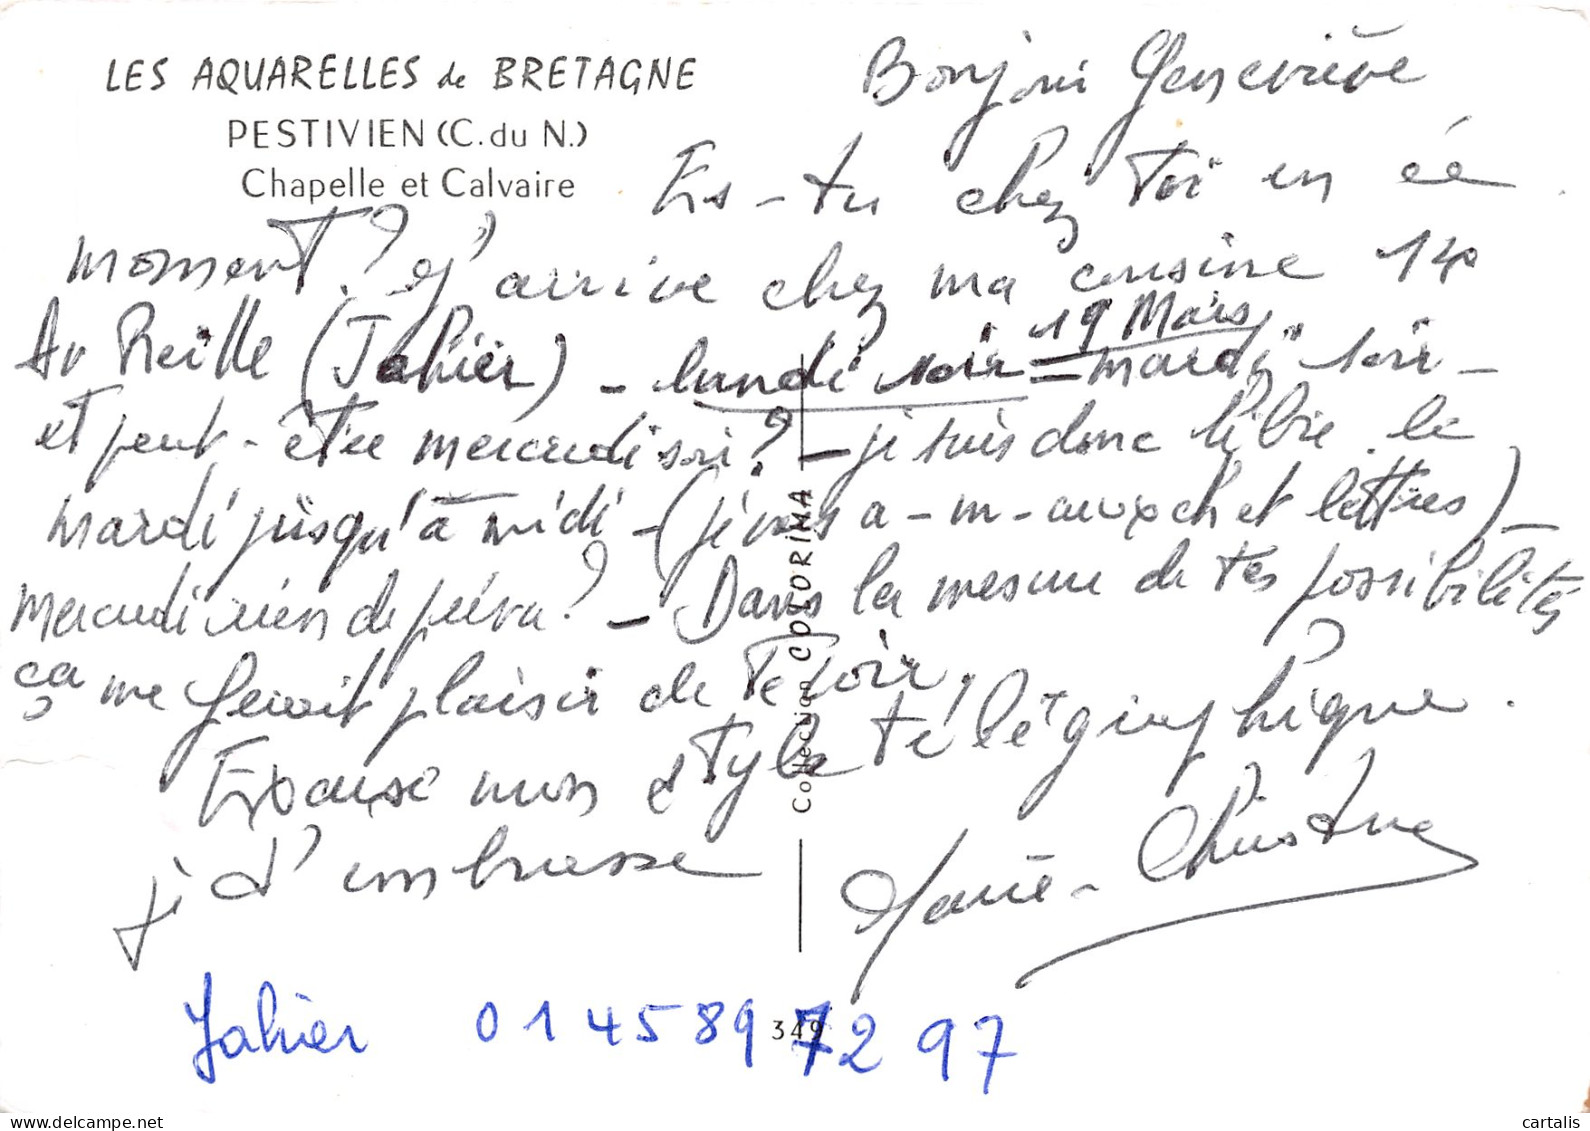 LES AQUARELLES de BRETAGNE
PESTIVIEN (C. du N.)
Chapelle et Calvaire
Bonjour Geneviève
Es-tu chez Toi en ce
moment ? J'arrive chez ma cousine
Av Reille (Jahier) - lundi soir = mardi soir -
19 Mars
et peut-être mercredi soir ? - je suis donc libre le
mardi jusqu'à midi - (je vais a-m- aux ch et lettres) -
Mercredi rien de prévu ? - Dans la mesure de tes possibilités
ça me ferait plaisir de Te voir.
Excuse mon style télégraphique.
je t'embrasse
Marie-Christine
Collection COLORIMA
349
Jahier 01 45 89 72 97
cartalis
www.delcampe.net